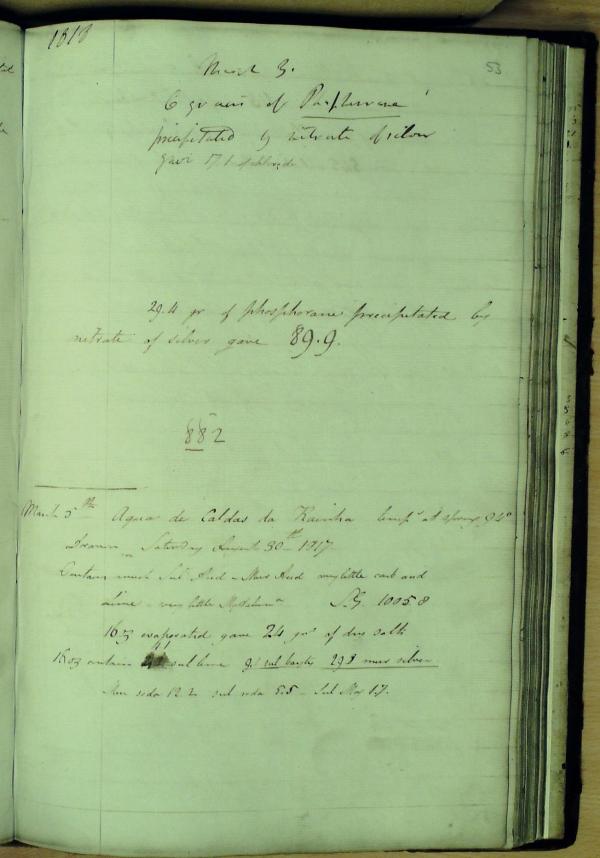 1818
53
March 3.
6 grains of Phosphorane
precipitated by nitrate of silver
gave 17.1 of chloride
29.4 gr of phosphorane precipitated by
nitrate of silver gave 89.9.
882
March 5th Agua de Caldas da Rainha temp at spring 94°
Drawn on Saturday August 30th 1817.
Contains much Sul Acid - Mur Acid very little carb and
Lime - very little Magnesia S.G. 10058
16 oz evaporated gave 24 grs of dry salts
16 oz contain sul lime sul barytes 29.8 mur silver
Mur soda 12.2 sul soda 5.5 - Sul Mag 1.7.